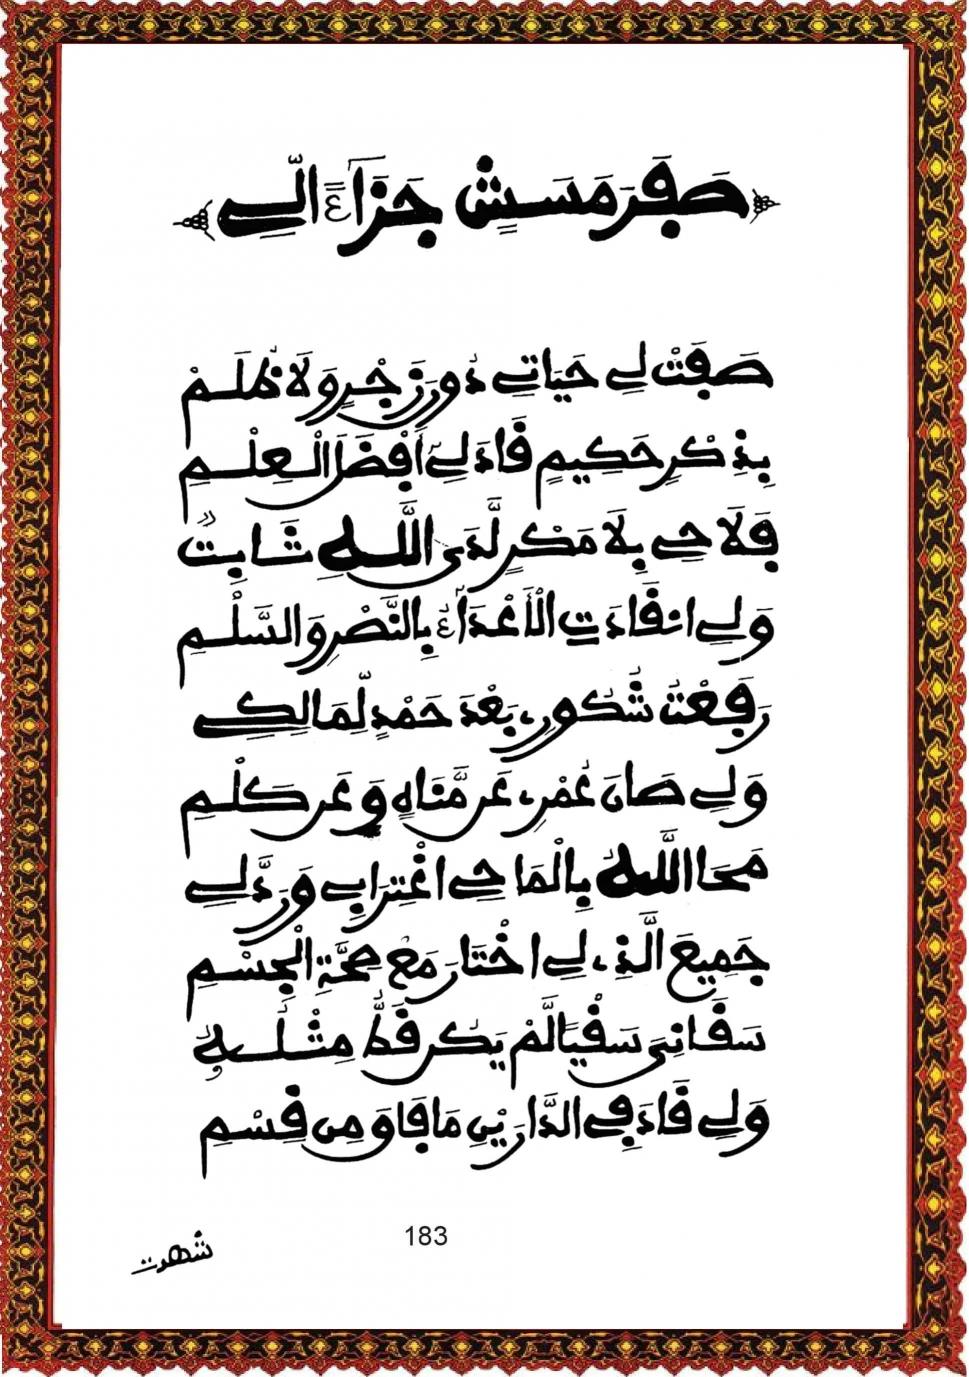 صَفَرَ مَسَشٍ جَزَاءً الِّي
صَفَتْ لِي حَيَاتِي دُونَ زَجْرٍ وَلَا ظُلْمٍ
بِذِكْرٍ حَكِيمٍ قَادَ لِي أَفْضَلَ الْعِلْمِ
فَلَاحِي بِلَا مَكْرٍ لَّدَى اللَّهِ ثَابِتٌ
وَلِي انقَادَتِ الْأَعْدَاءُ بِالنَّصْرِ وَالسَّلْمِ
رَفَعْتُ شُكُورِي بَعْدَ حَمْدٍ لِّمَالِكِي
وَلِي صَانَ عُمْرِي عَن مَّنَاهٍ وَعَن كَلْمِ
مَحَا اللَّهُ بِالْمَاحِي اغْتِرَابِي وَرَدَّ لِي
جَمِيعَ الَّذِي لِي اخْتَارَ مَعْ صِحَّةِ الْجِسْمِ
سَقَانِيَ سَقْيًا لَّمْ يَكُن قَطُّ مِثْلُهُ
وَلِي قَادَ فِي الدَّارَيْنِ مَا فَاقَ مِن قِسْمِ
183
شهرت